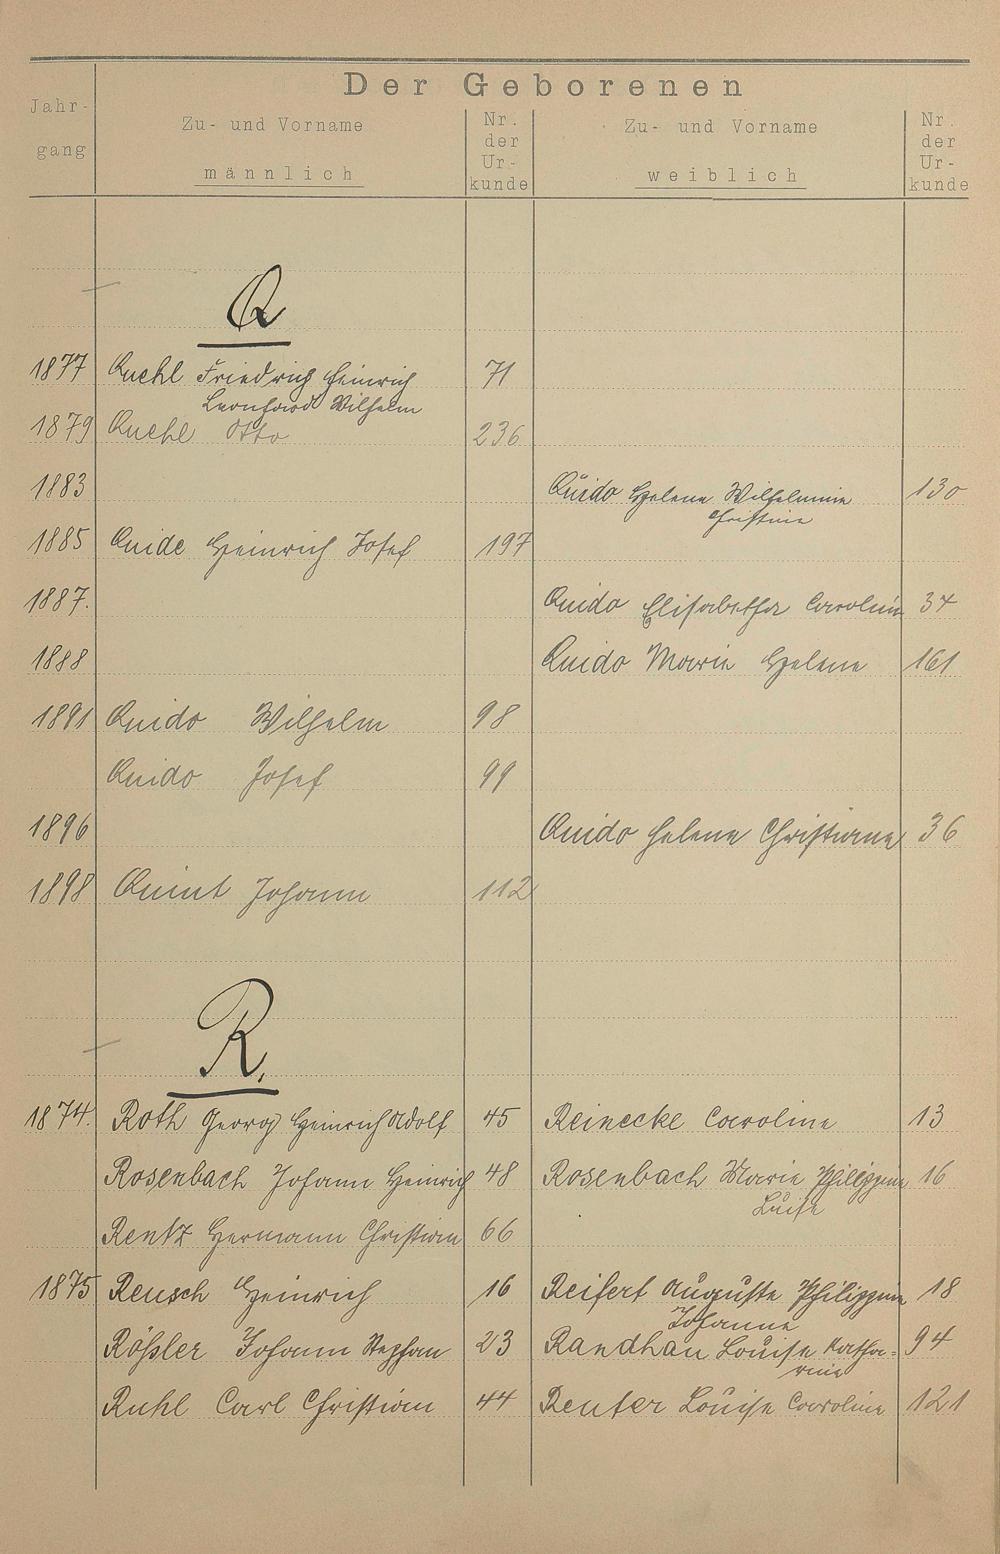 Der Geborenen
Jahr-
gang
Zu- und Vorname
männlich
Nr.
der
Ur-
kunde
Zu- und Vorname
weiblich
Nr.
der
Ur-
kunde
Q
1877 Quehl Friedrich Heinrich 71
Leonhard Wilhelm
1879 Quehl Otto 236
1883 Quido Helene Wilhelmine 130
Christine
1885 Quide Heinrich Josef 197
1887. Quido Elisabetha Caroline 34
1888 Quido Marie Helene 161
1891 Quido Wilhelm 98
Quido Josef 99
1896 Quido Helene Christiane 36
1898 Quint Johann 112
R.
1874. Roth Georg Heinrich Adolf 45 Reinecke Caroline 13
Rosenbach Johann Heinrich 48 Rosenbach Marie Philippine 16
Luise
Rentz Hermann Christian 66
1875 Reusch Heinrich 16 Reifert Auguste Philippine 18
Johanne
Rößler Johann Stephan 23 Randhan Louise Katha- 94
rine
Ruhl Carl Christian 44 Reuter Louise Caroline 121